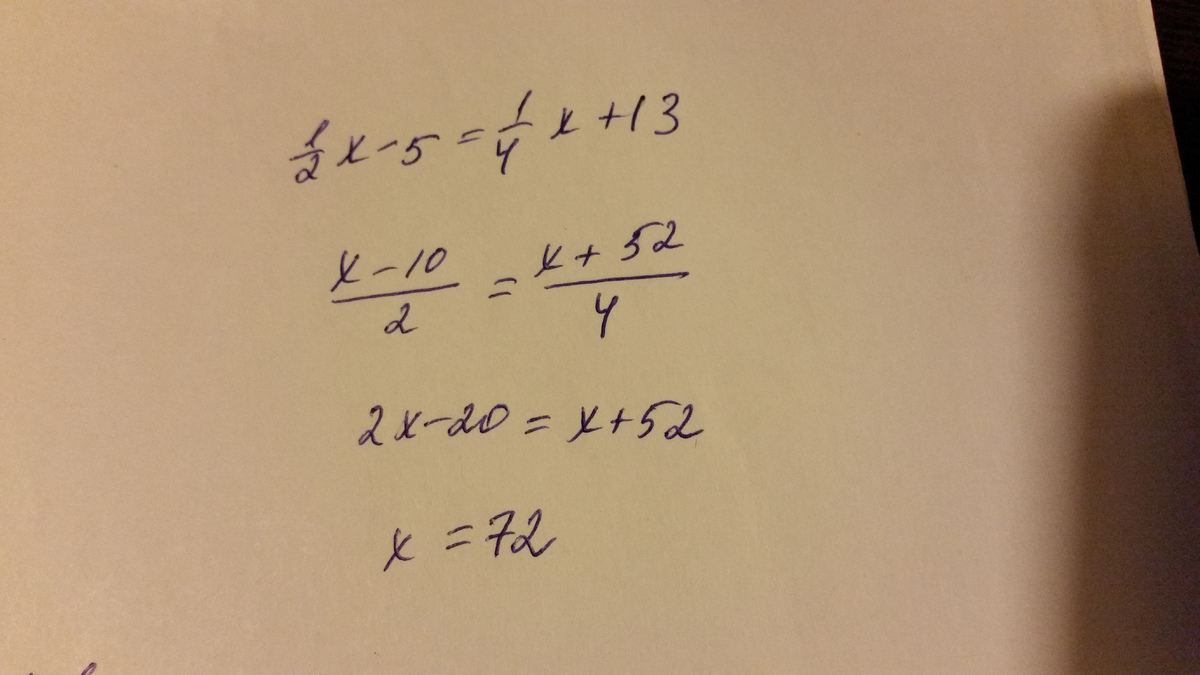 1/2 x - 5 = 1/4 x + 13
(x - 10)/2 = (x + 52)/4
2x - 20 = x + 52
x = 72